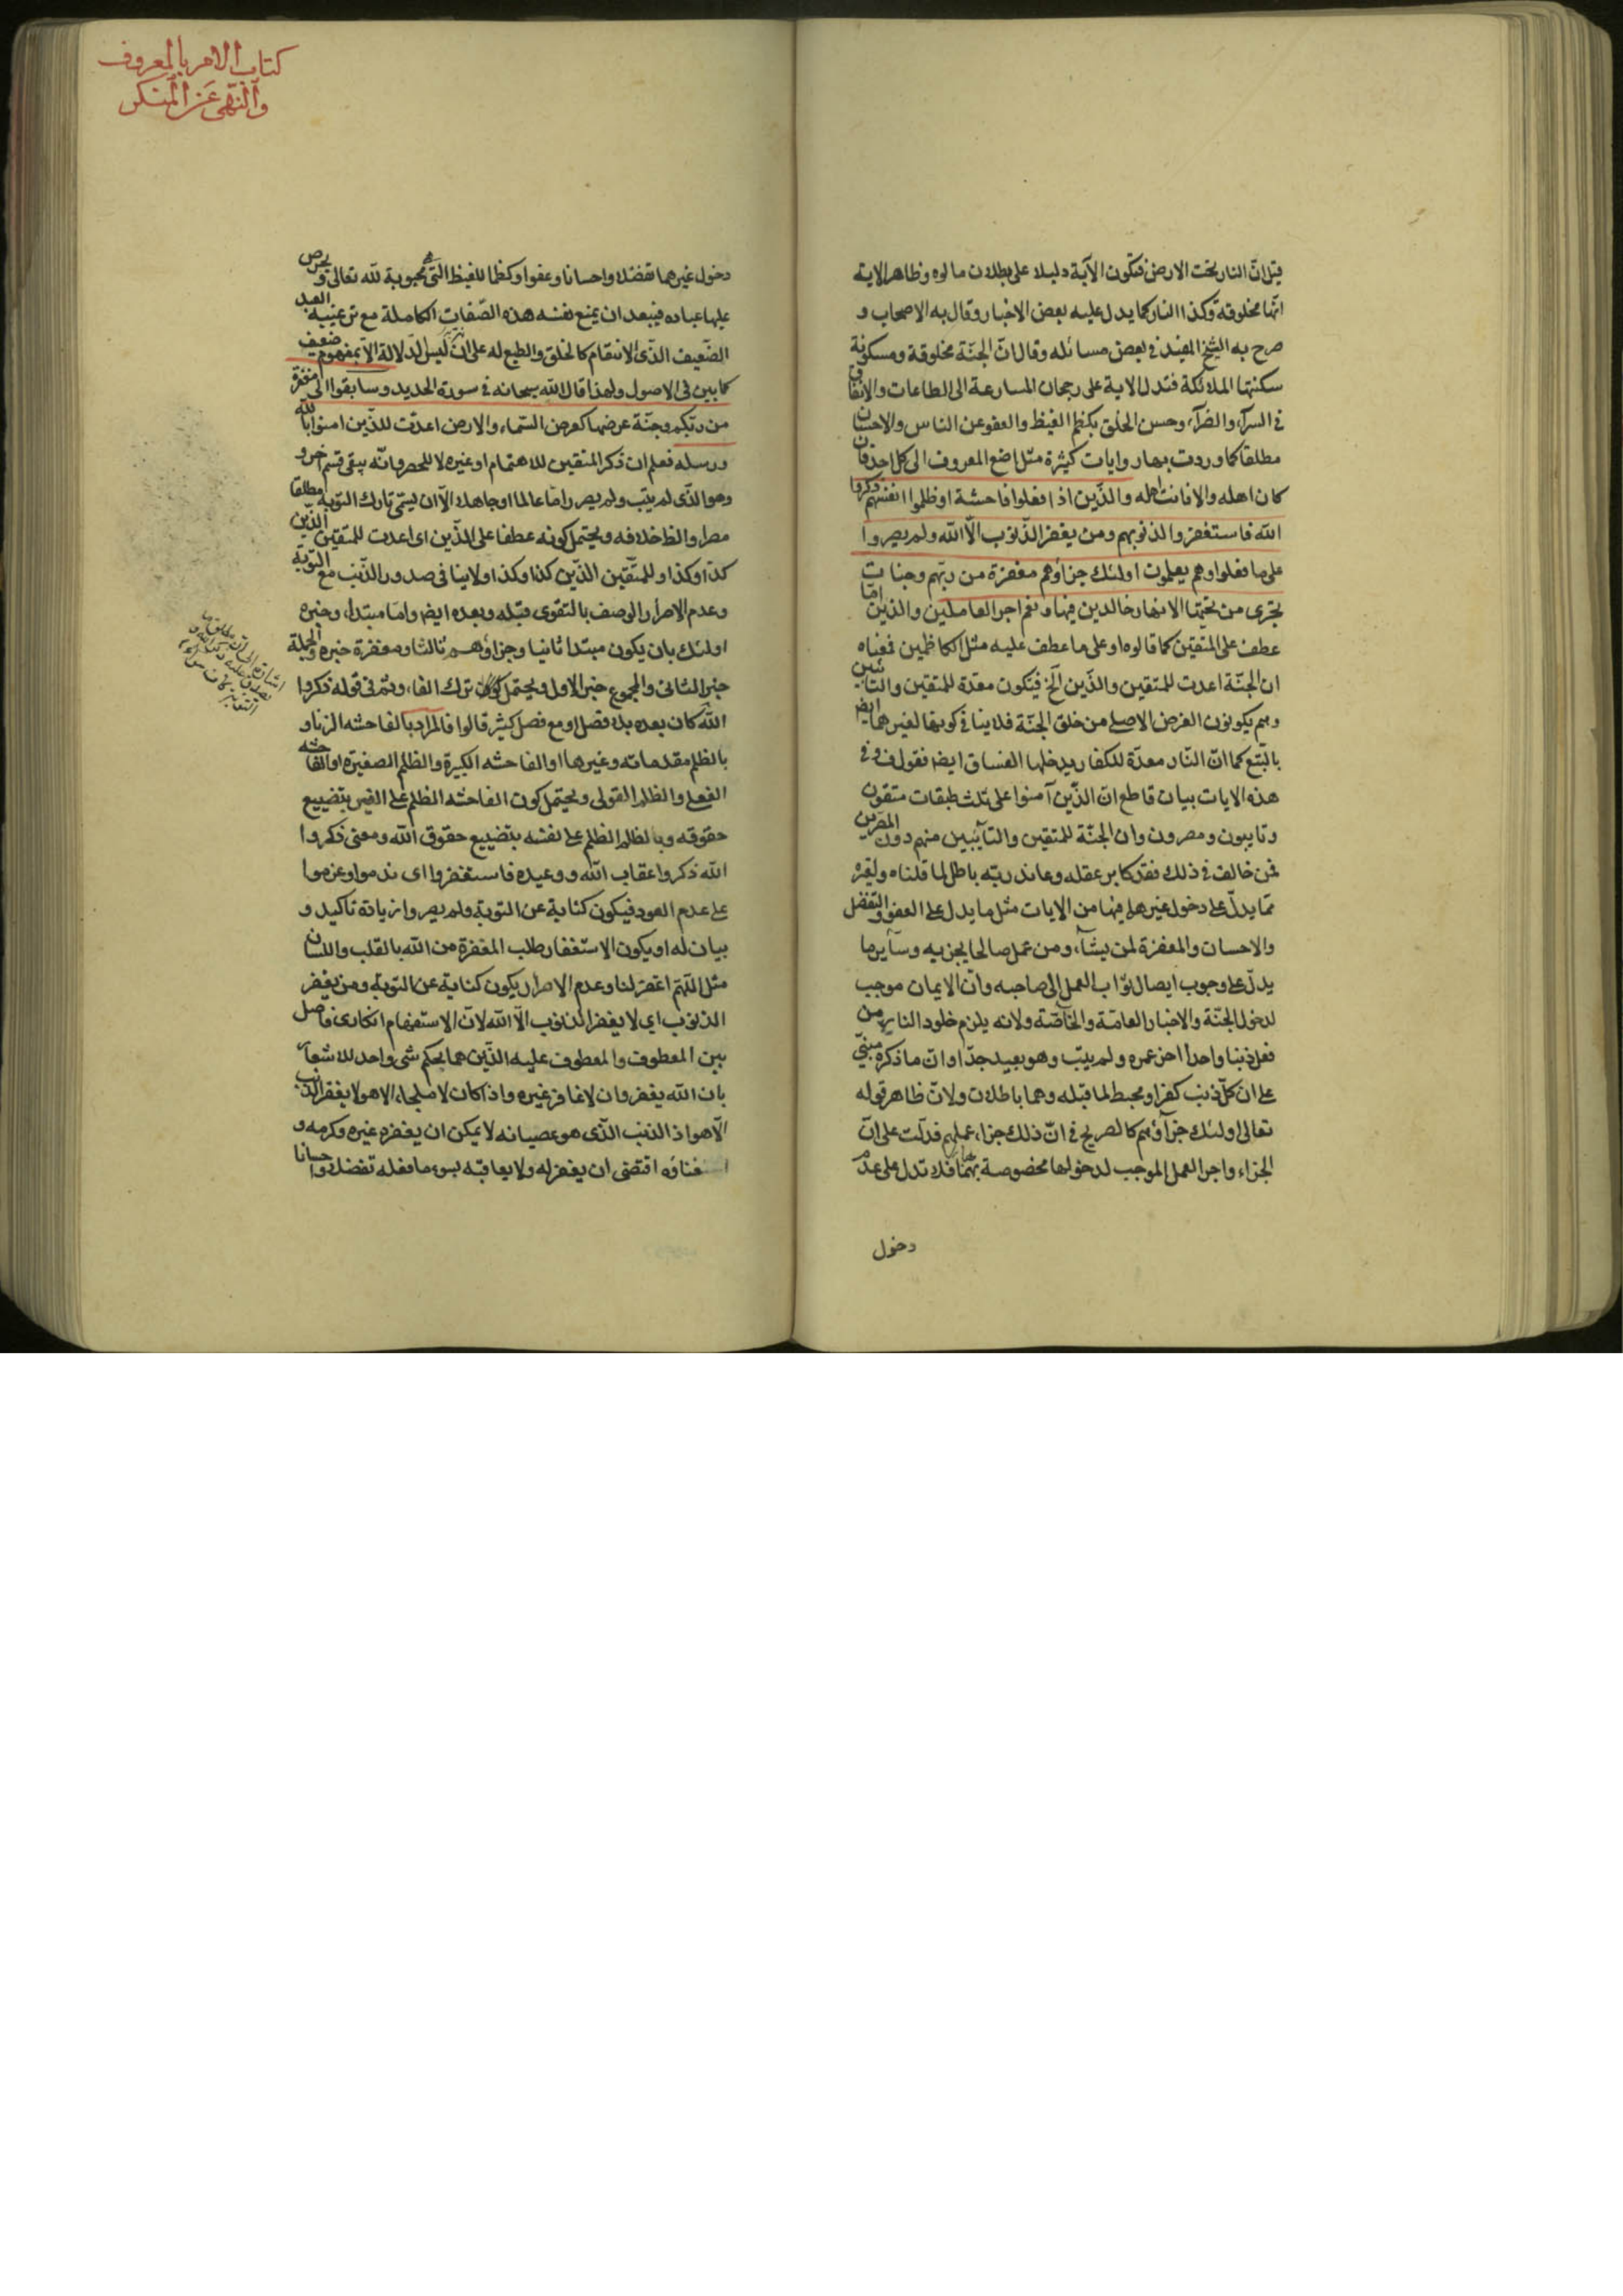 قيل ان النار تحت الارض فتكون الآية دليلا على بطلان ما لوه وظاهر الاية
انها مخلوقة وكذا النار كما يدل عليه بعض الاخبار وقال به الاصحاب و
صرح به الشيخ المفيد في بعض مسائله وقال ان الجنة مخلوقة ومسكونة
سكنتها الملائكة فتدل الاية على رجحان المسارعة الى الطاعات والانفاق
في السرآء والضرآء وحسن الخلق بكظم الغيظ والعفو عن الناس والاحسان
مطلقا كما وردت بها روايات كثيرة مثل اضع المعروف الى كل احد فان
كان اهله والا فانت اهله والذين اذا فعلوا فاحشة او ظلموا انفسهم ذكروا
الله فاستغفروا لذنوبهم ومن يغفر الذنوب الا الله ولم يصروا
على ما فعلوا وهم يعلمون اولئك جزاؤهم مغفرة من ربهم وجنات
تجرى من تحتها الانهار خالدين فيها ونعم اجر العاملين والذين امّا
عطف على المتقين كما قالوه او على ما عطف عليه مثل الكاظمين فمعناه
ان الجنة اعدت للمتقين والذين الخ فيكون معدة للمتقين والتائبين
وهم يكونون الغرض الاصلي من خلق الجنة فلا ينافي كونها لغيرهما ايض
بالتبع كما ان النار معدة للكفار يدخلها الفساق ايض فقول ف و في
هذه الايات بيان قاطع ان الذين آمنوا على ثلث طبقات متقون
وتايبون ومصرون وان الجنة للمتقين والتآئبين منهم دون المصرين
فمن خالف في ذلك فقد كابر عقله وعاند ربه باطل لما قلناه ولغيره
مما يدل على دخول غيرهما فيها من الايات مثل ما يدل على العفو والتفضل
والاحسان والمغفرة لمن يشآء ومن عمل صالحا يجز به وسآير ما
يدل على وجوب ايصال ثواب العمل الى صاحبه وان الايمان موجب
لدخول الجنة والاخبار العامة والخاصة ولانه يلزم خلود النار من
فعل ذنبا واحدا اخر عمره ولم يتب وهو بعيد جدا وان ما ذكره مبنى
على ان كل ذنب كفر او محبط لما قبله وهما باطلان ولان ظاهر قوله
تعالى اولئك جزآؤهم كالصريح في ان ذلك جزاء عملهم فدلت على ان
الجزاء واجر العمل الموجب لدخولها مخصوصة بهما فلا تدل على عدم
دخول
كتاب الامر بالمعروف
والنهى عن المنكر
دخول غيرهما تفضلا واحسانا وعفوا وكظما للغيظ التى محبوبة لله تعالى و يحرص
عليها عباده فيبعد ان يمنع نفسه هذه الصفات الكاملة مع ترغيبه العبد
الضعيف الذى الانتقام كالخلق والطبع له على انه ليس لدلالة الا بمفهوم ضعيف
كما بين فى الاصول ولهذا قال الله سبحانه في سورة الحديد وسابقوا الى مغفرة
من ربكم وجنة عرضها كعرض السماء والارض اعدت للذين امنوا بالله
ورسله فعلم ان ذكر المتقين للاهتمام او غيره لا للحصر وانه يبقى قسم اخر و
وهو الذى لم يتب ولم يصر راضا عالما او جاهلا الا ان يسمى تارك التوبة مطلقا
مصرا والظ خلافه ويحتمل كونه عطفا على الذين اى اعدت للمتقين الذين
كذا وكذا وللمتقين الذين كذا وكذا ولا ينافى صدور الذنب مع التوبة
وعدم الاصرار الوصف بالتقوى قبله وبعده ايض واما مبتداء وخبره
اولئك بان يكون مبتدا ثانيا وجزاؤهم ثالثا ومغفرة خبره والجملة
خبر الثانى والمجموع خبر الاول ويحتمل كون ترك الفاء وثم فى قوله ذكروا
الله كان بعده بلا فصل او مع فصل كثير قالوا فالمراد بالفاحشه الزنا و
بالظلم مقدماته وغيرها او الفاحشه الكبيرة والظلم الصغيرة او الفاحشه
الفعلى والظلم القولى ويحتمل كون الفاحشه الظلم على الغير بتضييع
حقوقه وبالظلم الظلم على نفسه بتضييع حقوق الله ومعنى ذكروا
الله ذكروا عقاب الله ووعيده فاستغفروا اى ندموا وعزموا
على عدم العود فيكون كناية عن التوبة ولم يصروا زيادة تاكيد و
بيان له او يكون الاستغفار طلب المغفرة من الله بالقلب واللسان
مثل اللهم اغفر لنا وعدم الاصرار يكون كناية عن التوبة ومن يغفر
الذنوب اي لا يغفر الذنوب الا الله لان الاستفهام انكارى فاصل
بين المعطوف والمعطوف عليه الذين هما بحكم شى واحد للاشعار
بان الله يغفر وان لا غافر غيره واذ كان لا ملجاء الا هو لا يغفر الذنب
الا هو اذ الذنب الذى هو عصيانه لا يمكن ان يغفره غيره وكرمه و
استغناؤه اقتضى ان يغفر له ولا يعاقبه بسوء ما فعله تفضلا واحسانا